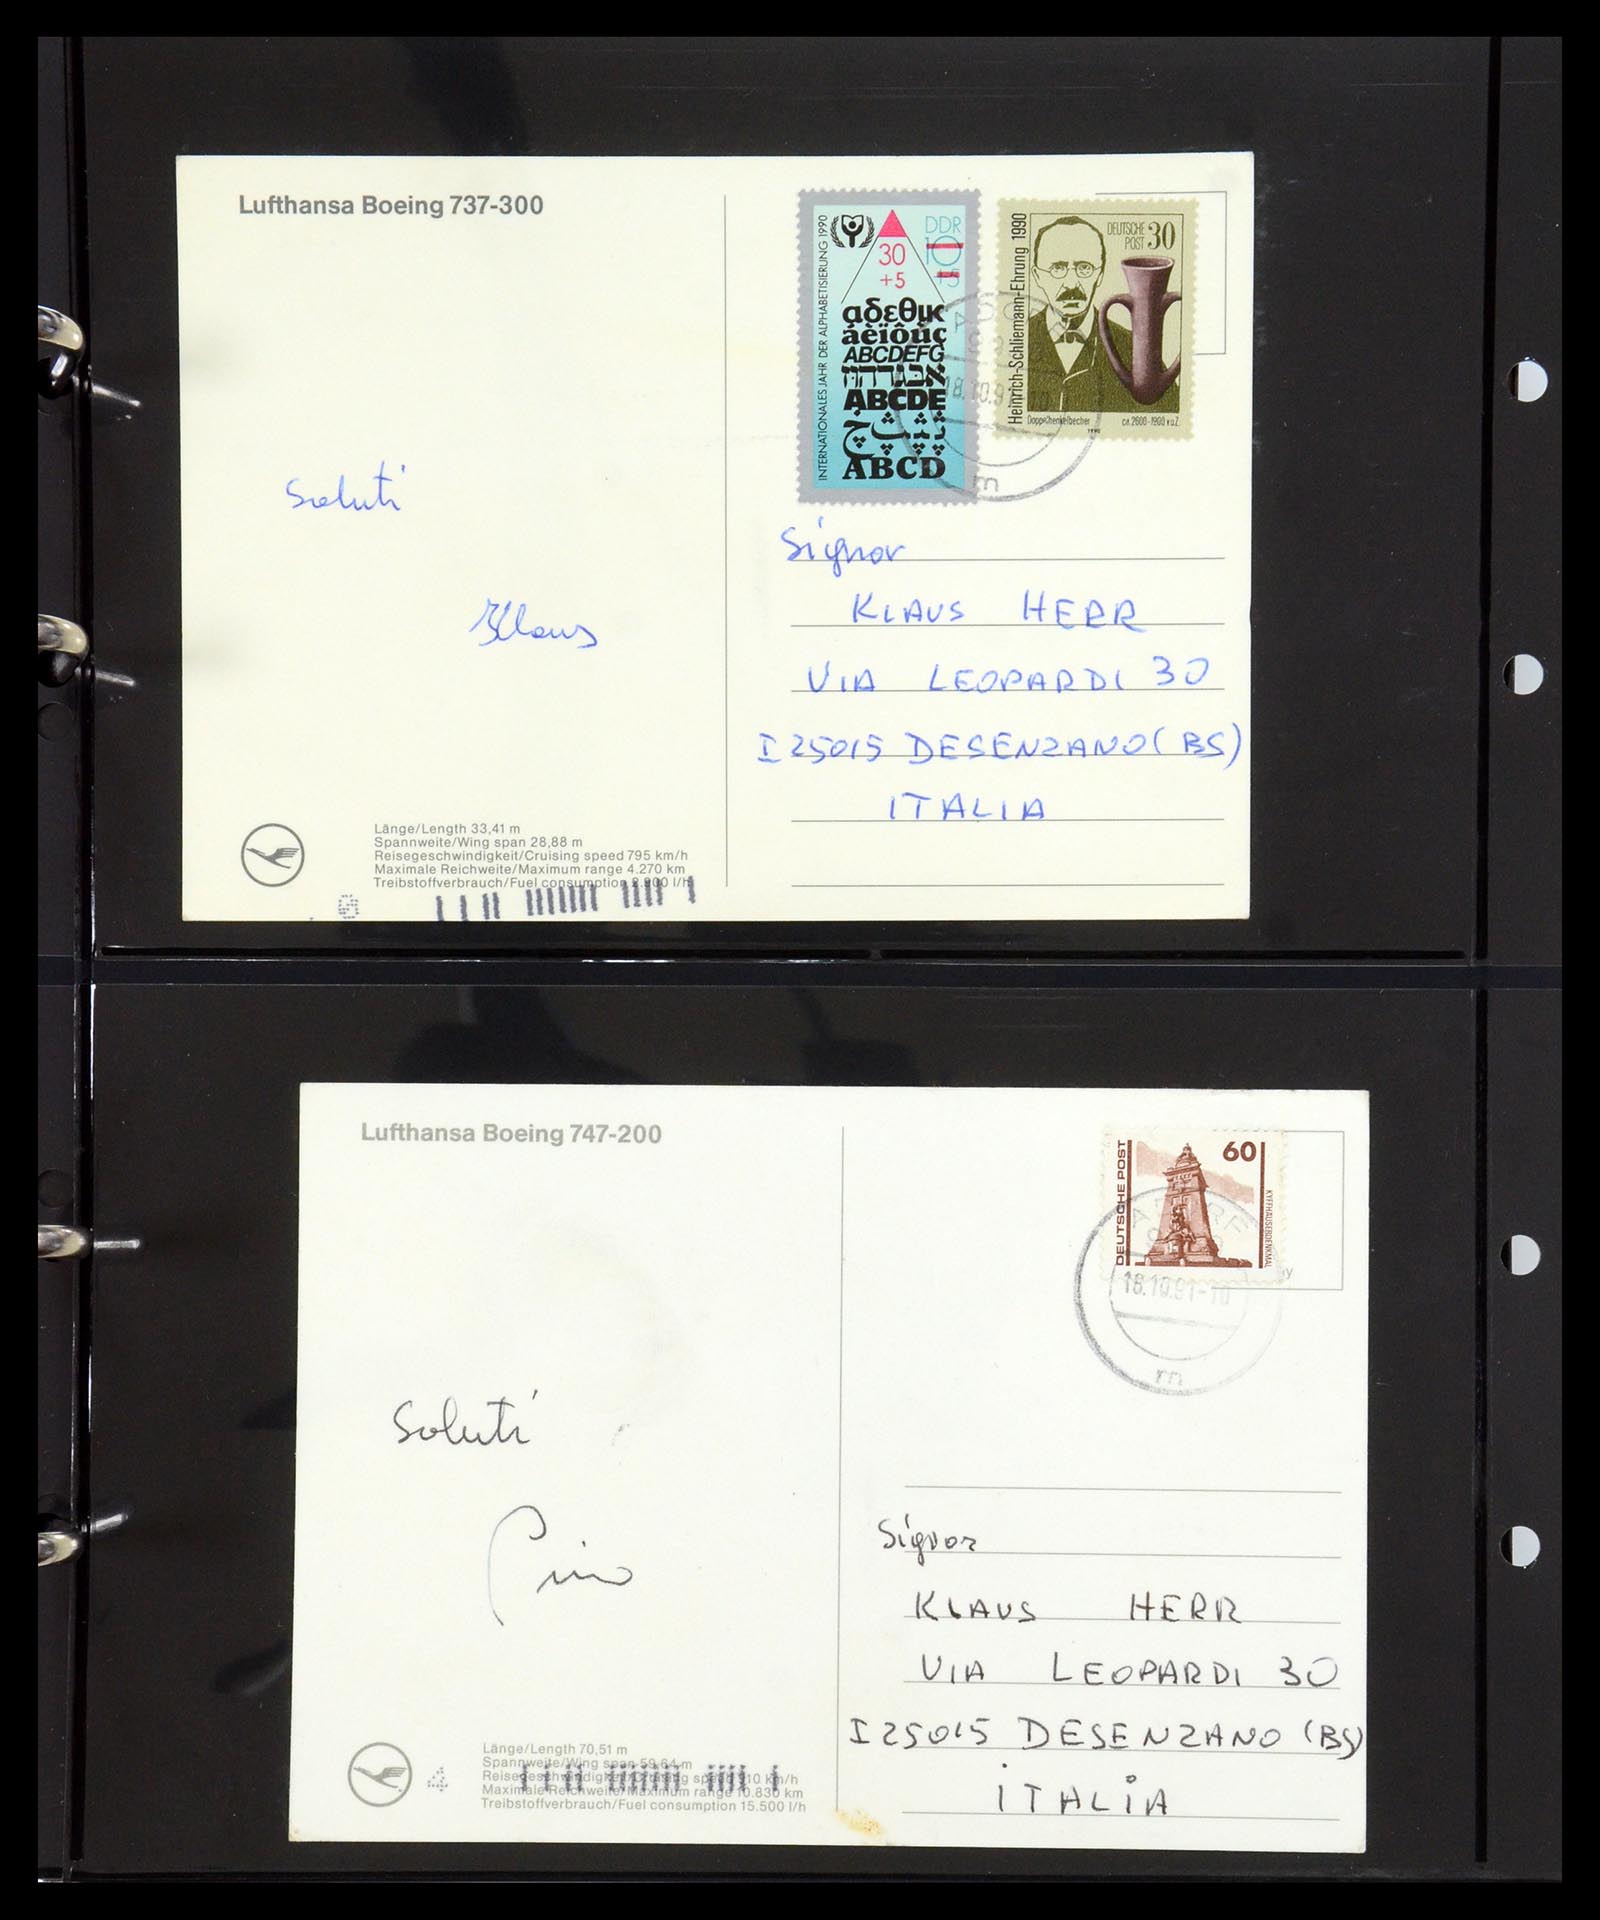 Lufthansa Boeing 737-300
INTERNATIONALES JAHR DER ALPHABETISIERUNG 1990
DDR
10
+5
30
+5
αδεθικ
áèïôûç
ABCDEFG
אבגדהוז
ABCDE
ABCD
Heinrich-Schliemann-Ehrung 1990
DEUTSCHE
POST 30
Doppelhenkelbecher
ca. 2600-1900 v.u.Z.
1990
18.10.91
m
Saluti
Klaus
Signor
KLAUS HERR
VIA LEOPARDI 30
I 25015 DESENZANO (BS)
ITALIA
Länge/Length 33,41 m
Spannweite/Wing span 28,88 m
Reisegeschwindigkeit/Cruising speed 795 km/h
Maximale Reichweite/Maximum range 4.270 km
Treibstoffverbrauch/Fuel consumption 2.900 l/h
Lufthansa Boeing 747-200
DEUTSCHE POST
60
KYFFHÄUSERDENKMAL
ADORF
18.10.91-10
m
Saluti
Pino
Signor
KLAUS HERR
VIA LEOPARDI 30
I 25015 DESENZANO (BS)
ITALIA
4
Länge/Length 70,51 m
Spannweite/Wing span 59,64 m
Reisegeschwindigkeit/Cruising speed 910 km/h
Maximale Reichweite/Maximum range 10.830 km
Treibstoffverbrauch/Fuel consumption 15.500 l/h